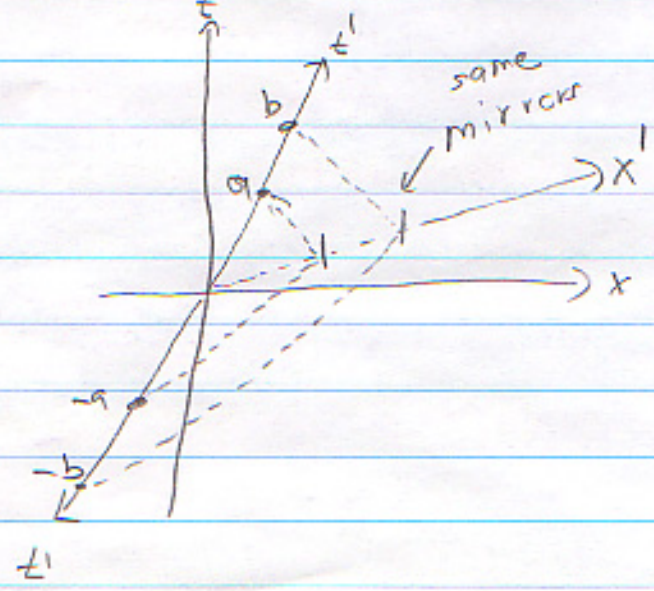 t
t'
same
mirrors
b
a
x'
x
-a
-b
t'